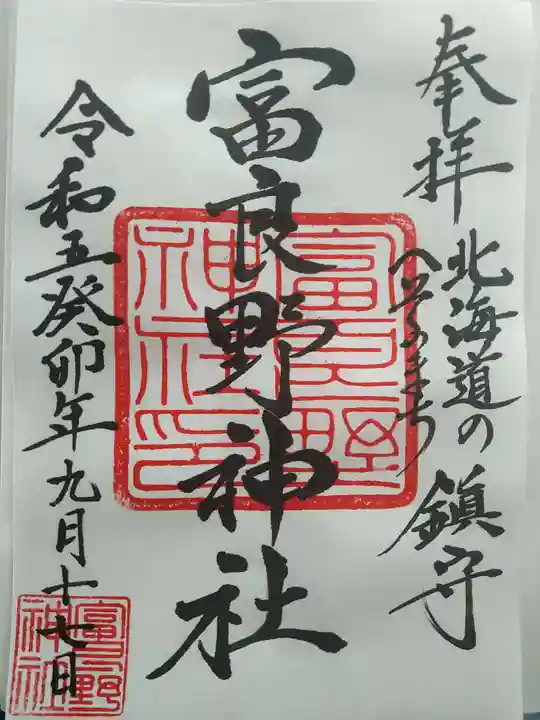 奉拝
北海道の
へそのまち
鎮守
富良野神社
富良野
神社印
令和五癸卯年九月十七日
富良野
神社